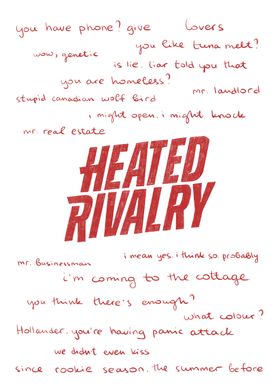 you have phone? give
lovers
you like tuna melt?
wow, genetic
is lie. liar told you that
you are homeless?
mr. landlord
stupid canadian wolf bird
i might open. i might knock
mr. real estate
HEATED
RIVALRY
mr. businessman
i mean yes. i think so. probably
i'm coming to the cottage
you think there's enough?
what colour?
Hollander. you're having panic attack
we didn't even kiss
since rookie season. the summer before